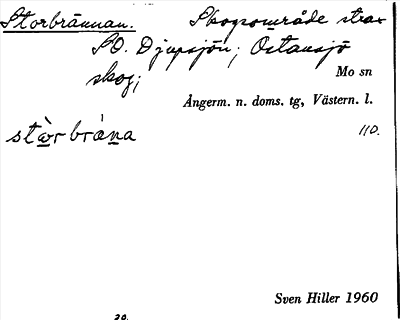 Storbrännan. Skogsområde strax
SO. Djupsjön; Östansjö
skog;
Mo sn
Ångerm. n. doms. tg, Västern. l.
110.
stɷ̀rbrána
Sven Hiller 1960
20.